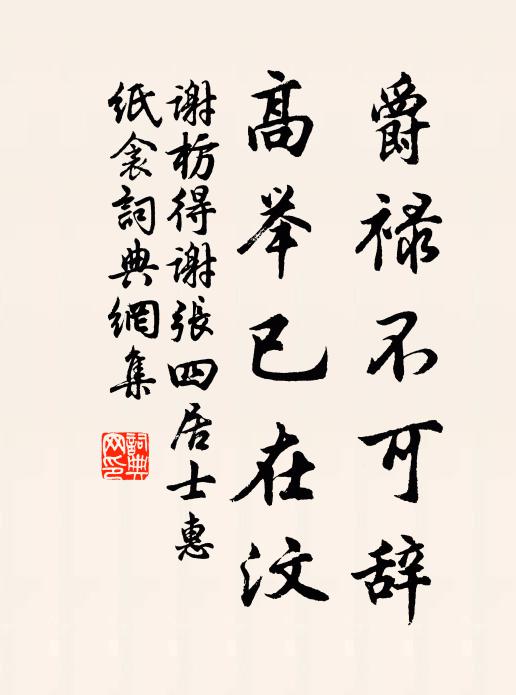 爵禄不可辞
高举已在汶
谢枋得谢張四居士惠
纸衾詞典網集
詞典网印